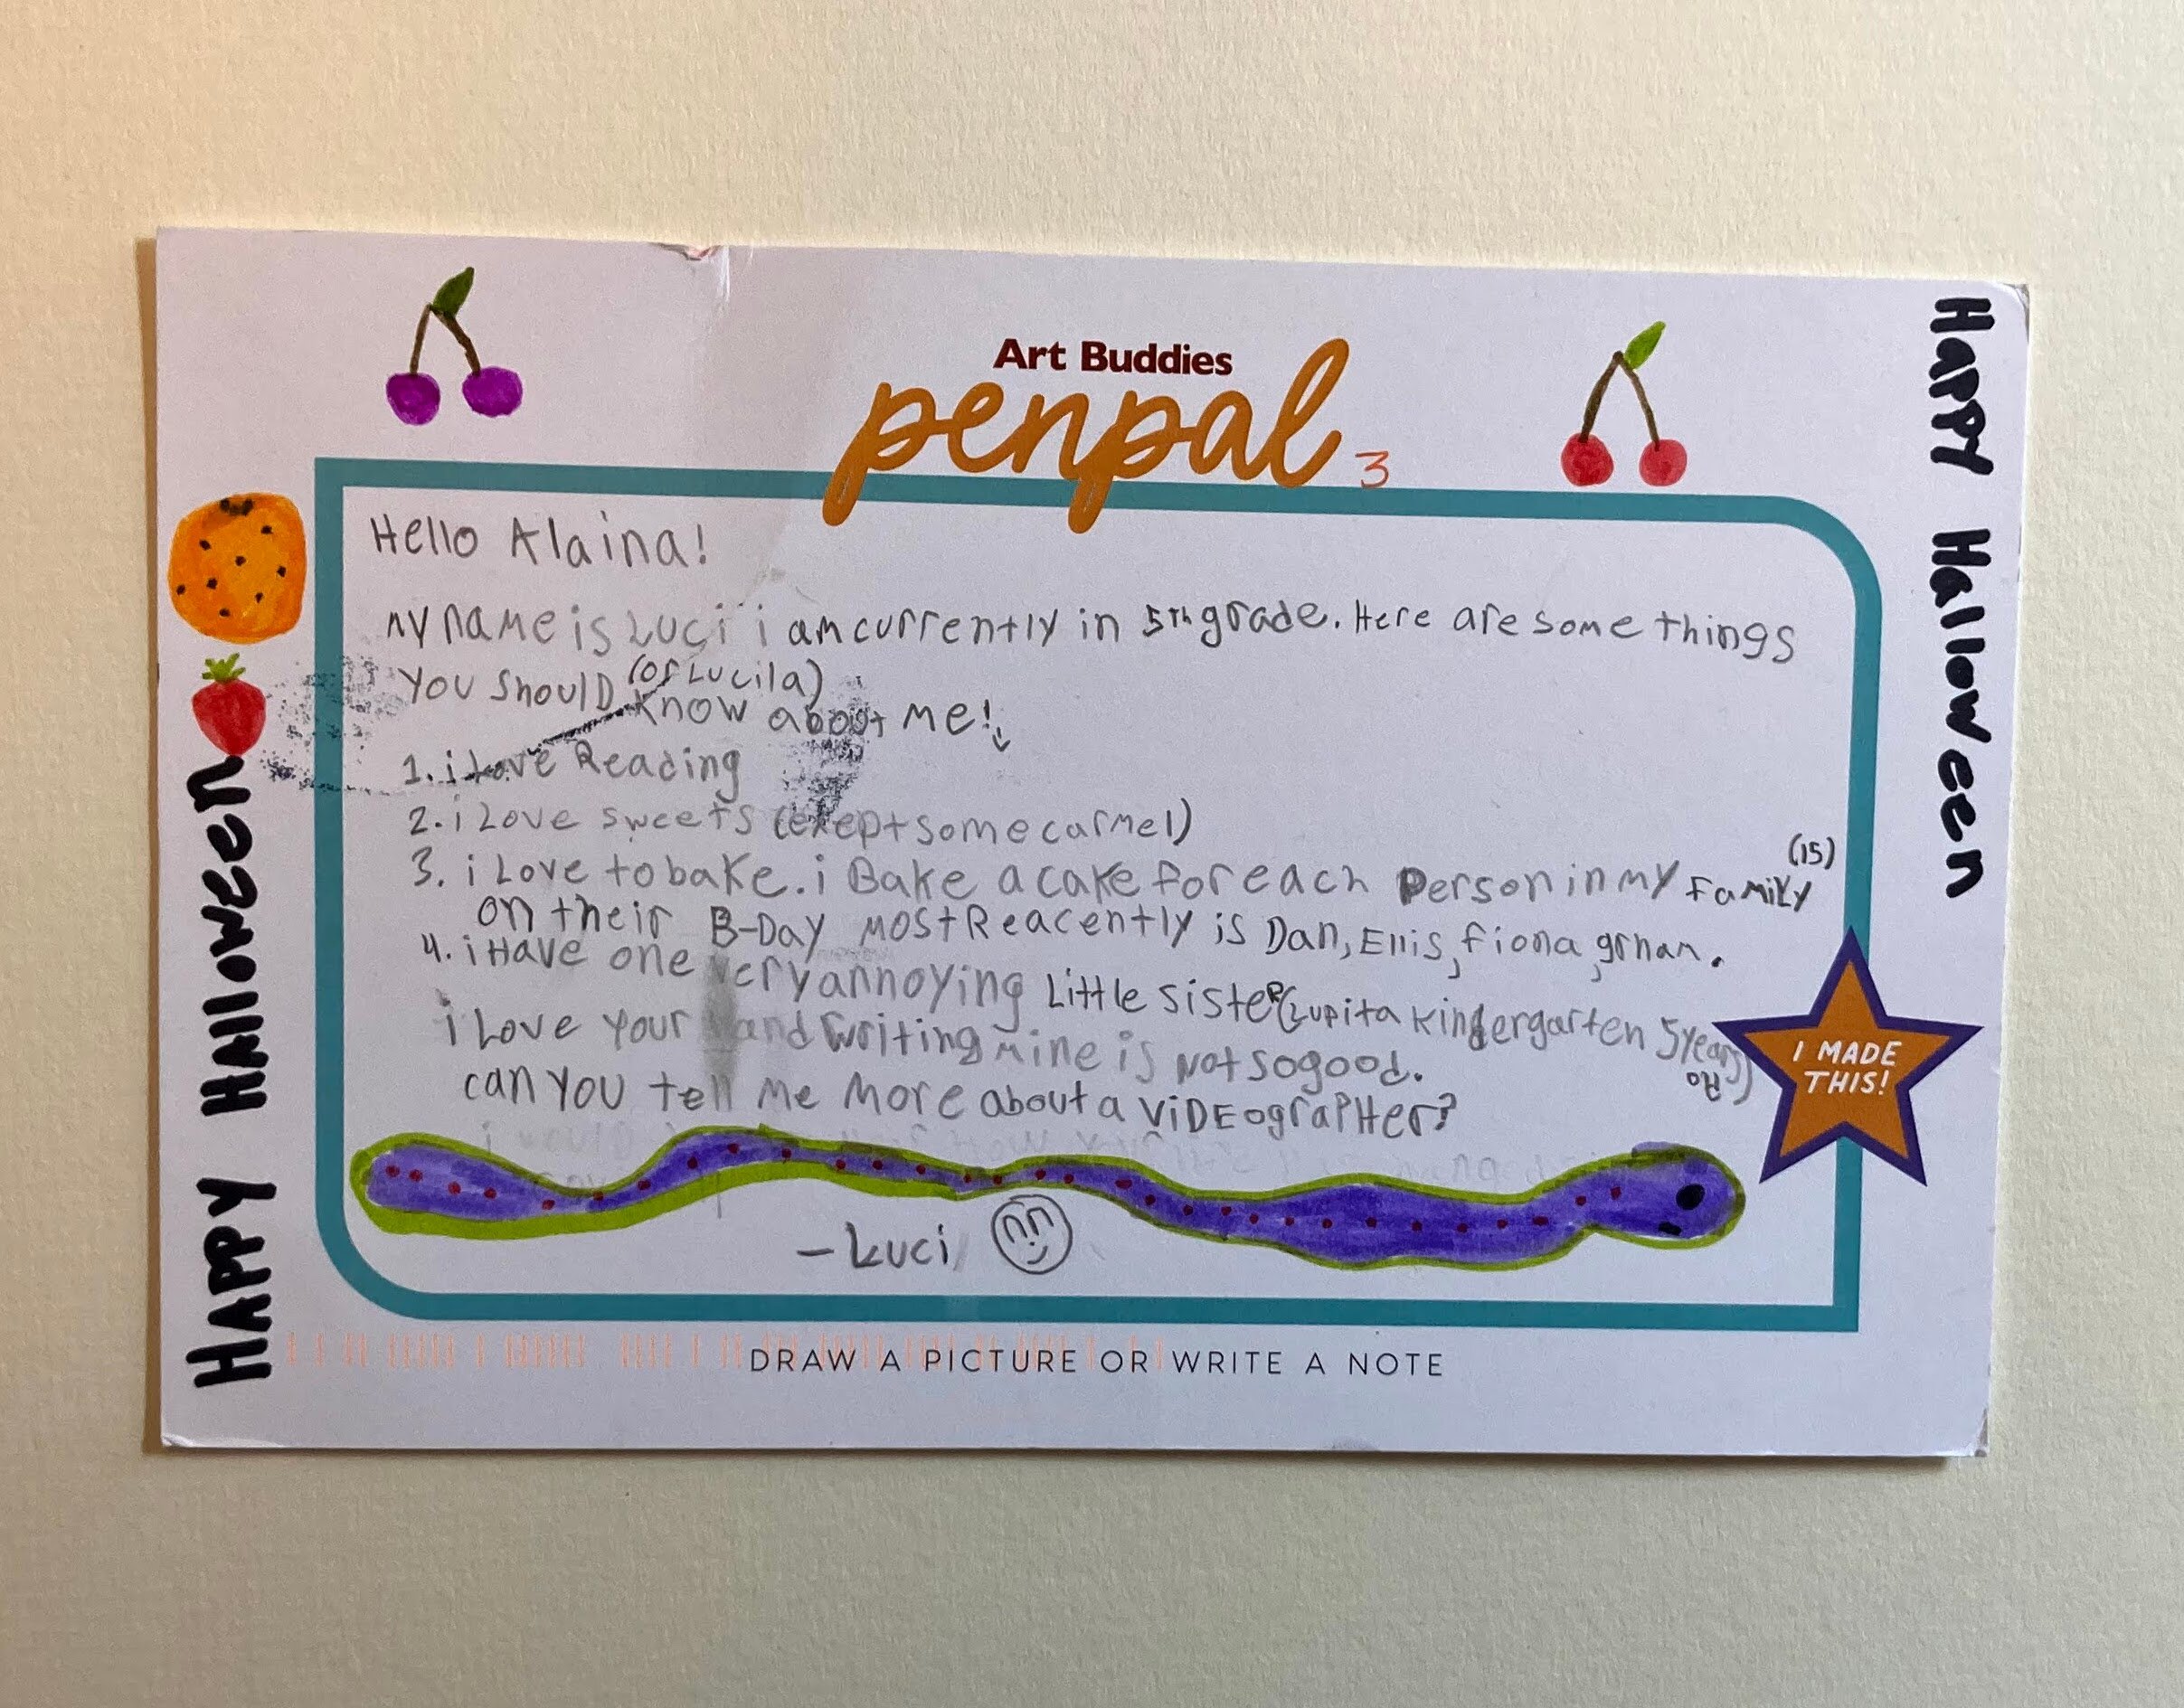 Art Buddies
penpal 3
Hello Alaina!
My name is Luci i am currently in 5th grade. Here are some things
(or Lucila)
you should know about me!
1. i Love Reading
2. i Love sweets (exept some carmel)
3. i Love to bake. i Bake a cake for each Person in my family (15)
on their B-Day most Reacently is Dan, Ellis, fiona,
4. i Have one very annoying Little sister (Lupita Kindergarten 5 years old)
i Love your Hand writing mine is Not so good.
can you tell me more about a ViDEographer?
- Luci
I MADE
THIS!
DRAW A PICTURE OR WRITE A NOTE
Happy Halloween
Happy Halloween